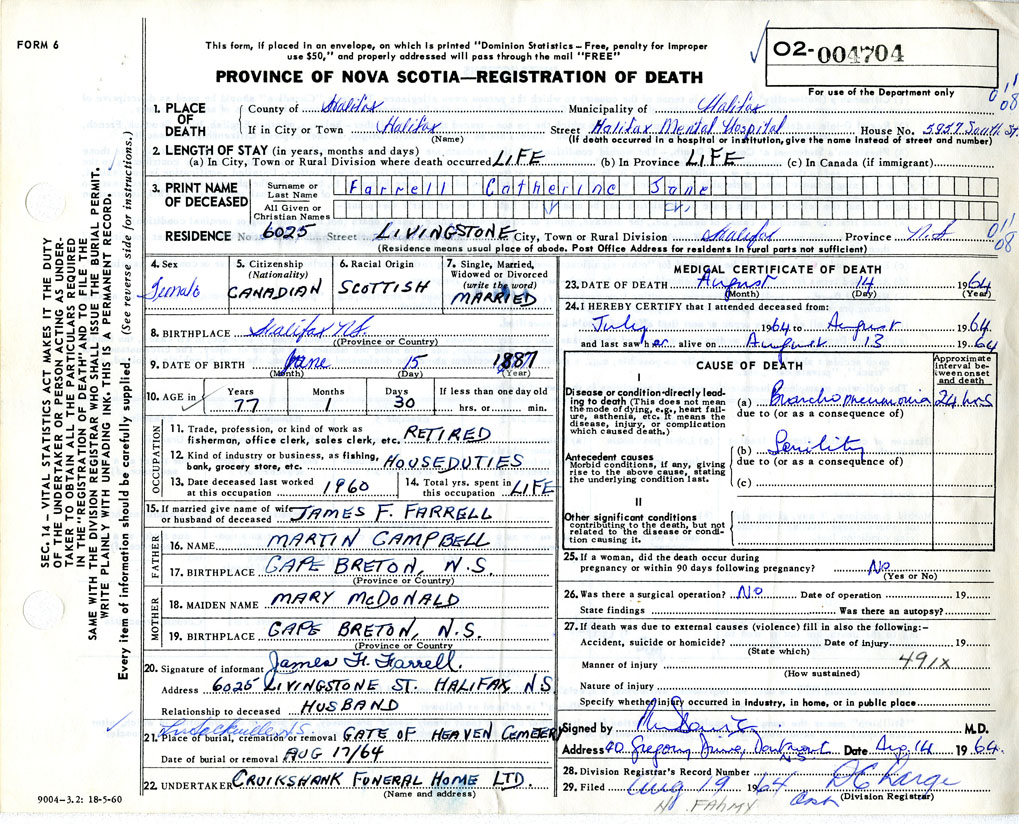 FORM 6
This form, if placed in an envelope, on which is printed "Dominion Statistics – Free, penalty for improper
use $50," and properly addressed will pass through the mail "FREE"
PROVINCE OF NOVA SCOTIA—REGISTRATION OF DEATH
02-004704
For use of the Department only
011
08
SEC. 14 – VITAL STATISTICS ACT MAKES IT THE DUTY
OF THE UNDERTAKER OR PERSON ACTING AS UNDER-
TAKER TO OBTAIN ALL THE PARTICULARS REQUIRED
IN THE "REGISTRATION OF DEATH" AND TO FILE THE
SAME WITH THE DIVISION REGISTRAR WHO SHALL ISSUE THE BURIAL PERMIT.
WRITE PLAINLY WITH UNFADING INK. THIS IS A PERMANENT RECORD.
Every item of information should be carefully supplied. (See reverse side for instructions.)
1. PLACE OF DEATH
County of Halifax Municipality of Halifax
If in City or Town Halifax Street Halifax Mental Hospital House No. 5937 South St.
(Name) (If death occurred in a hospital or institution, give the name instead of street and number)
2. LENGTH OF STAY (in years, months and days)
(a) In City, Town or Rural Division where death occurred LIFE (b) In Province LIFE (c) In Canada (if immigrant)
3. PRINT NAME OF DECEASED
Surname or Last Name Farrell Catherine Jane
All Given or Christian Names
RESIDENCE No. 6025 Street LIVINGSTONE City, Town or Rural Division Halifax Province N.S
011
08
(Residence means usual place of abode. Post Office Address for residents in rural parts not sufficient)
4. Sex Female
5. Citizenship (Nationality) CANADIAN
6. Racial Origin SCOTTISH
7. Single, Married, Widowed or Divorced (write the word) MARRIED
8. BIRTHPLACE Halifax N.S.
(Province or Country)
9. DATE OF BIRTH June 15 1887
(Month) (Day) (Year)
10. AGE in Years 77 Months 1 Days 30 If less than one day old hrs. or min.
OCCUPATION
11. Trade, profession, or kind of work as
fisherman, office clerk, sales clerk, etc. RETIRED
12. Kind of industry or business, as fishing,
bank, grocery store, etc. HOUSEDUTIES
13. Date deceased last worked at this occupation 1960
14. Total yrs. spent in this occupation LIFE
15. If married give name of wife or husband of deceased JAMES F. FARRELL
FATHER
16. NAME MARTIN CAMPBELL
17. BIRTHPLACE CAPE BRETON, N.S.
(Province or Country)
MOTHER
18. MAIDEN NAME MARY McDONALD
19. BIRTHPLACE CAPE BRETON, N.S.
(Province or Country
20. Signature of informant James F. Farrell.
Address 6025 LIVINGSTONE ST. HALIFAX, N.S
Relationship to deceased HUSBAND
Sackville N.S.
21. Place of burial, cremation or removal GATE OF HEAVEN CEMETERY
Date of burial or removal AUG 17/64
22. UNDERTAKER CRUIKSHANK FUNERAL HOME LTD.
(Name and address)
9004–3.2: 18-5-60
MEDICAL CERTIFICATE OF DEATH
23. DATE OF DEATH August 14 1964
(Month) (Day) (Year)
24. I HEREBY CERTIFY that I attended deceased from:
July 1964 to August 1964
and last saw her alive on August 13 1964
CAUSE OF DEATH
Approximate interval between onset and death
I
Disease or condition directly leading to death (This does not mean
the mode of dying, e.g., heart failure, asthenia, etc. It means the
disease, injury, or complication which caused death.)
(a) Bronchopneumonia 24 hrs
due to (or as a consequence of)
Antecedent causes
Morbid conditions, if any, giving rise to the above cause, stating the underlying condition last.
(b) Senility
due to (or as a consequence of)
(c)
II
Other significant conditions
contributing to the death, but not related to the disease or condition causing it.
25. If a woman, did the death occur during
pregnancy or within 90 days following pregnancy? No
(Yes or No)
26. Was there a surgical operation? No Date of operation 19
State findings Was there an autopsy?
27. If death was due to external causes (violence) fill in also the following:–
Accident, suicide or homicide? Date of injury 19
(State which)
491x
Manner of injury
(How sustained)
Nature of injury
Specify whether injury occurred in industry, in home, or in public place
Signed by M.D.
Address 40 Gregory Drive, Dartmouth NS Date Aug. 14 1964
28. Division Registrar's Record Number
29. Filed Aug 19 1964
(Division Registrar)
FAHMY